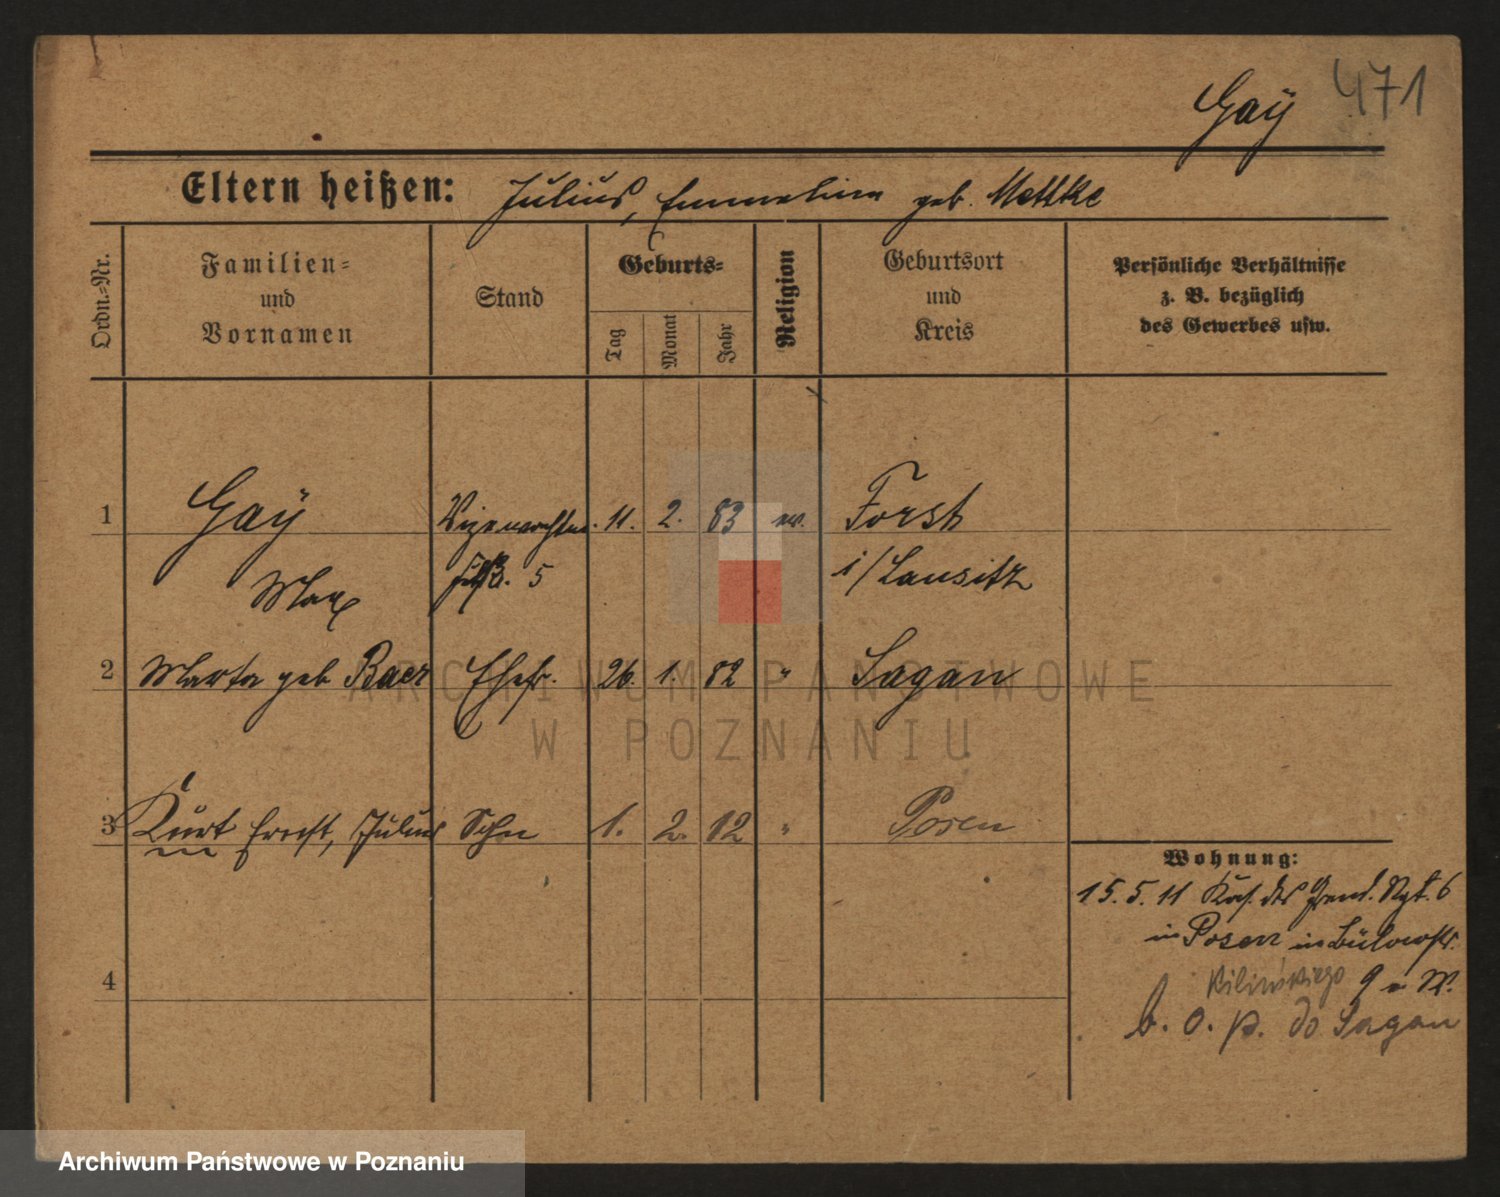 Gaÿ 471
Eltern heißen: Julius, Emmeline geb. Mettke
Ordn.=Nr.
Familien=
und
Vornamen
Stand
Geburts=
Tag
Monat
Jahr
Religion
Geburtsort
und
Kreis
Persönliche Verhältnisse
z. B. bezüglich
des Gewerbes usw.
1 Gaÿ Vizewachtm. 11. 2. 83 ev. Forst
Max 5 i/Lausitz
2 Marta geb Baer Ehefr. 26. 1. 82 " Sagan
3 Kurt Ernst, Julius Sohn 1. 2. 12 " Posen
4
Wohnung:
15. 5. 11 Kas. des Gren. Rgt. 6
in Posen in Bülowstr.
Kilińskiego 9 a W.
b. o. p. do Sagan
ARCHIWUM PAŃSTWOWE
W POZNANIU
Archiwum Państwowe w Poznaniu